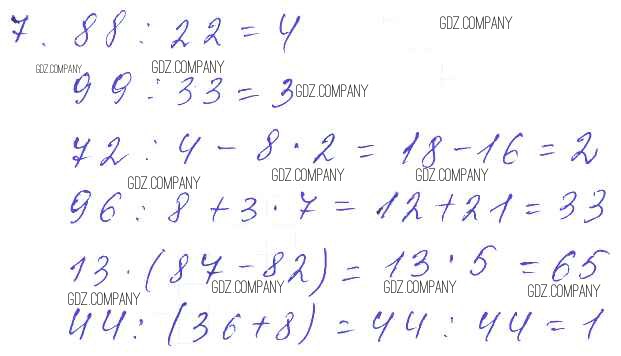 7. 88 : 22 = 4
GDZ.COMPANY
GDZ.COMPANY GDZ.COMPANY
99 : 33 = 3 GDZ.COMPANY
72 : 4 - 8 · 2 = 18 - 16 = 2
GDZ.COMPANY GDZ.COMPANY GDZ.COMPANY
96 : 8 + 3 · 7 = 12 + 21 = 33
13 · (87 - 82) = 13 · 5 = 65
GDZ.COMPANY GDZ.COMPANY GDZ.COMPANY GDZ.COMPANY
44 : (36 + 8) = 44 : 44 = 1